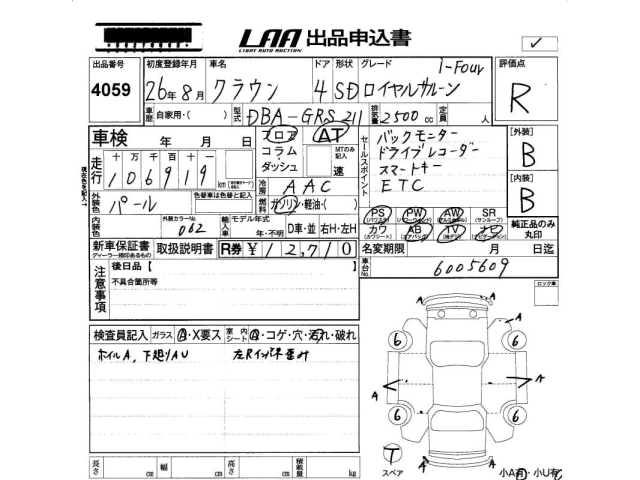 LAA 出品申込書
LIGHT AUTO AUCTION
出品番号 4059
初度登録年月 26年8月
車名 クラウン
ドア 4 形状 SD グレード ロイヤルサルーン i-Four
評価点 R
車歴 自家用・( )
型式 DBA-GRS211
排気量 2500cc
定員 人
車検 年 月 日
フロア コラム・ダッシュ
AT
MTのみ記入 速
セールスポイント
バックモニター
ドライブレコーダー
スマートキー
ETC
[外装] B
[内装] B
走行 十万千百十
106919 km
冷房 AAC
燃料 ガソリン・軽油・( )
外装色 パール
色替車は色替と記入
内装色
外装カラーNo. 062
輸入車 モデル年式 年・不明
D車・並 右H・左H
PS (パワステ) PW (パワーウィンド) AW (アルミホイル) SR (サンルーフ)
カワ (カワシート) AB (エアバッグ) TV ナビ (ナビゲーション)
純正品のみ丸印
新車保証書
ディーラー捺印あるもの
取扱説明書
R券 ¥12,710
名変期限 月 日迄
車台No. 6005609
注意事項
後日品【 】
不具合箇所等
ロック車
検査員記入 ガラス A・X要ス 室内シート A・コゲ・穴・汚れ・破れ
ホイルA、下廻りAU 左Rインパネ歪み
A
A
6 6
A A
6 6
A A
T
スペア
小A有・小U有
長さ cm 幅 cm 高さ cm 積載量 kg